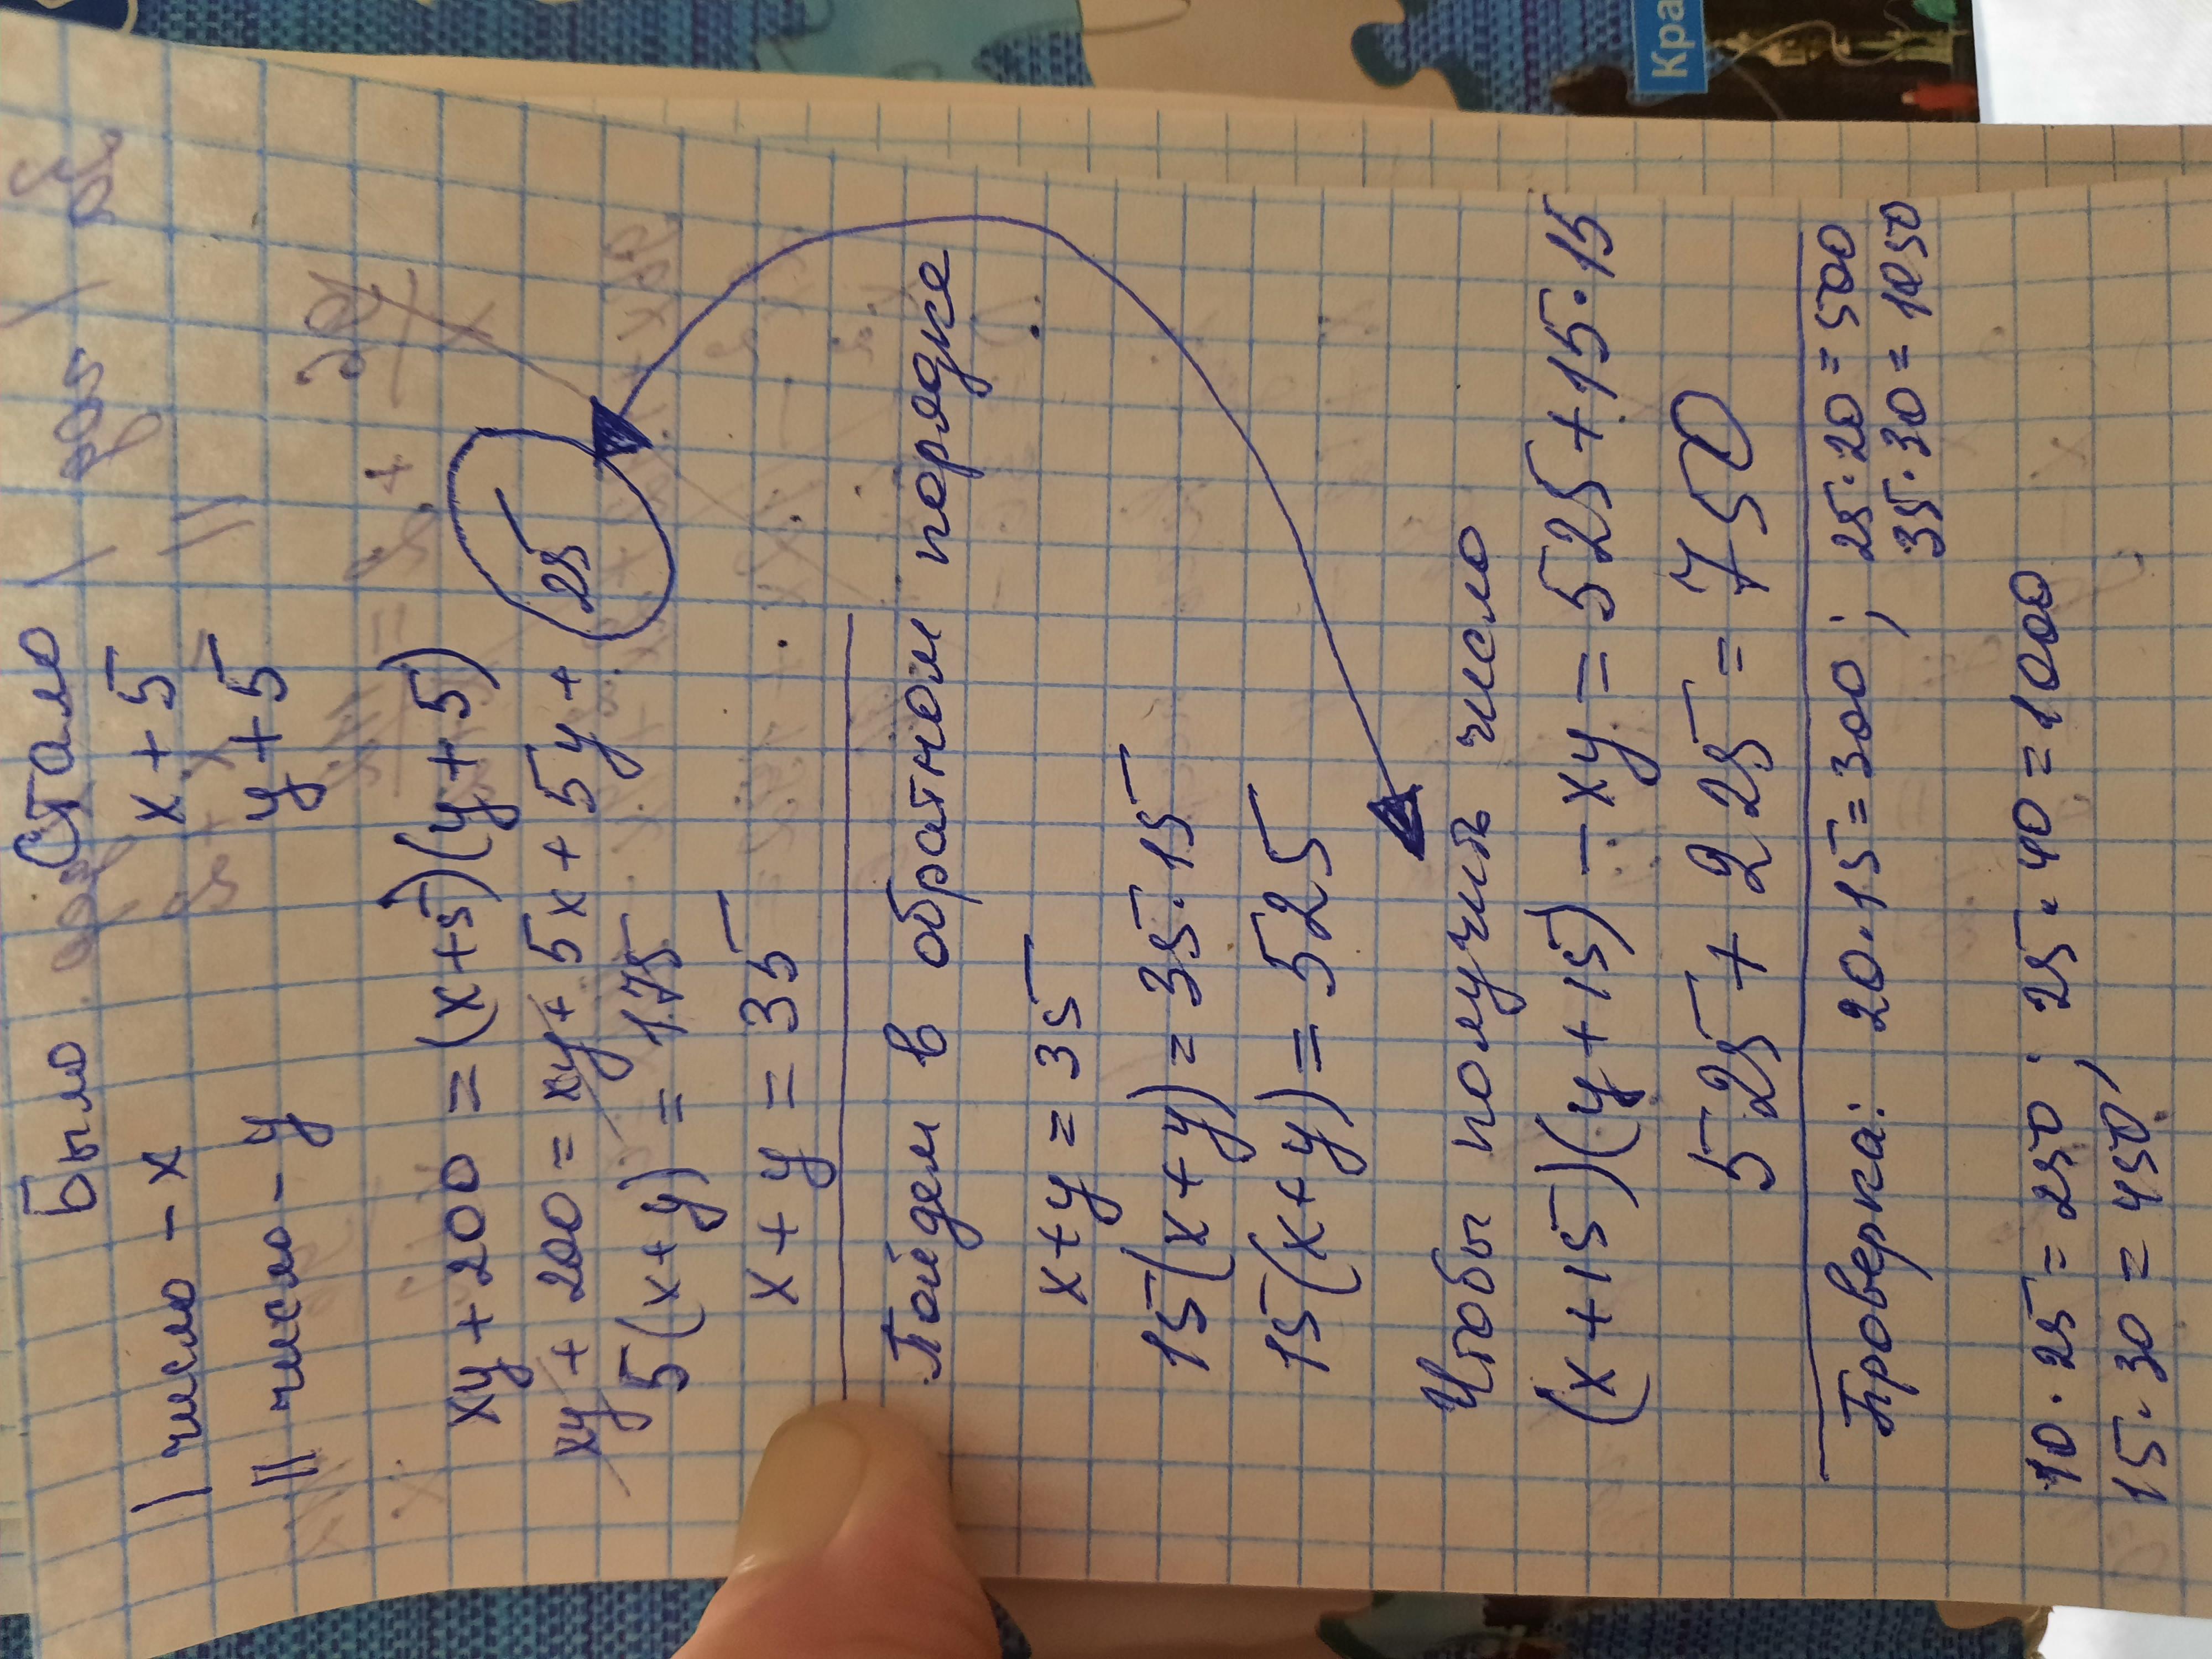 Было Стало
I число - x x + 5
II число - y y + 5
xy + 200 = (x+5)(y+5)
xy + 200 = xy + 5x + 5y +
25
5(x+y) = 175
x + y = 35
Пойдем в обратном порядке
x + y = 35
15(x+y) = 35·15
15(x+y) = 525
Чтобы получить число
(x+15)(y+15) - xy = 525 + 15·15
525 + 225 = 750
Проверка: 20·15=300; 25·20=500
35·30=1050
10·25=250; 25·40=1000
15·30=450;
Кра